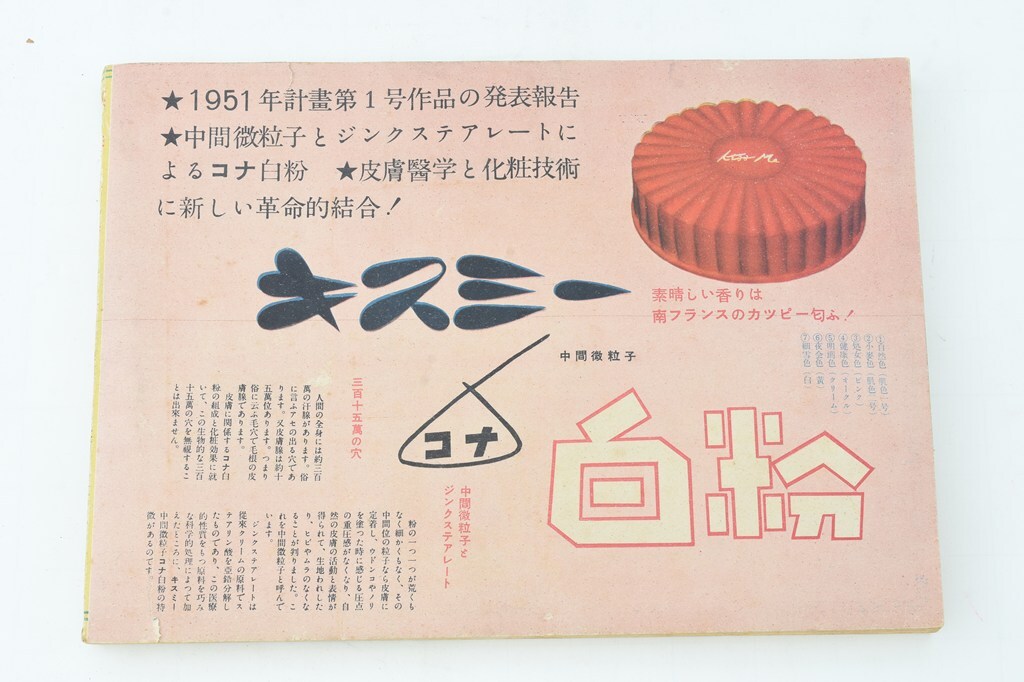 ★1951年計畫第1号作品の発表報告
★中間微粒子とジンクステアレートに
よるコナ白粉　★皮膚醫学と化粧技術
に新しい革命的結合！
Kiss Me
素晴しい香りは
南フランスのカツピー匂ふ！
キスミー
中間微粒子
コナ
白粉
①自然色（肌色一号）
②小麦色（肌色二号）
③処女色（ピンク）
④健康色（イークル）
⑤明朗色（クリーム）
⑥夜会色（黄）
⑦細雪色（白）
三百十五萬の穴
人間の全身には約三百
萬の汗腺があります。俗
に言ふアセの出る穴であ
ります。又皮膚腺は約十
五萬位あります。つまり
俗に云ふ毛穴で毛根の皮
膚腺であります。
皮膚に関係するコナ白
粉の組成と化粧効果に就
いて、この生物的な三百
十五萬の穴を無視するこ
とは出來ません。
中間微粒子と
ジンクステアレート
粉の一つ一つが荒くも
なく細かくもなく、その
中間位の粒子なら皮膚に
定着し、ウドンコやノリ
を塗つた時に感じる圧点
の重圧感がなくなり、自
然の皮膚の活動と表情が
得られて、生地われした
り、ヒビやムラのなくな
ることが判りました。こ
れを中間微粒子と呼んで
います。
ジンクステアレートは
從來クリームの原料でス
テアリン酸を亜鉛分解し
たものであり、この医療
的性質をもつ原料を巧み
な科学的処理によつて加
えたところに、キスミー
中間微粒子コナ白粉の特
徴があるのです。